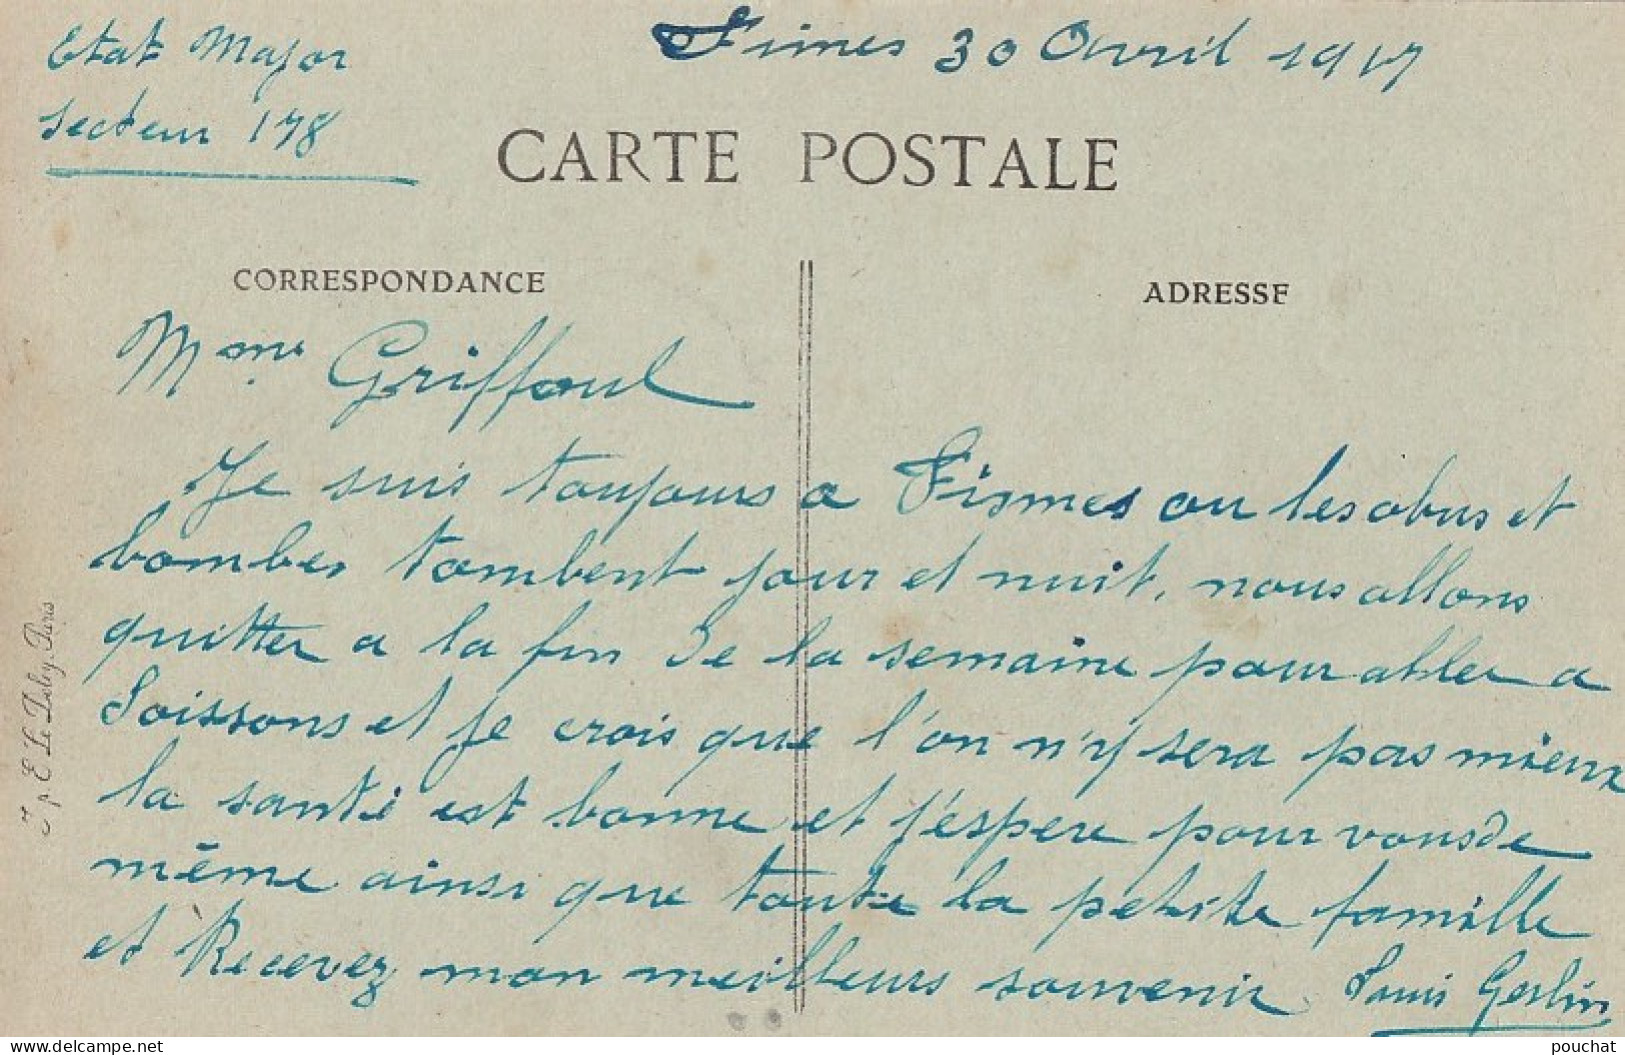 Etat Major
Secteur 178
Fimes 30 Avril 1917
CARTE POSTALE
CORRESPONDANCE
ADRESSE
Mme Griffoul
Je suis toujours a Fismes ou les obus et
bombes tombent jour et nuit, nous allons
quitter a la fin de la semaine pour abler a
Soissons et je crois que l'on n'y sera pas mieux
la santé est bonne et j'éspere pour vous de
même ainsi que toute la petite famille
et Recevez mon meilleurs souvenir Louis Geslin
I. p. E. Le Deley, Paris
www.delcampe.net
pouchat